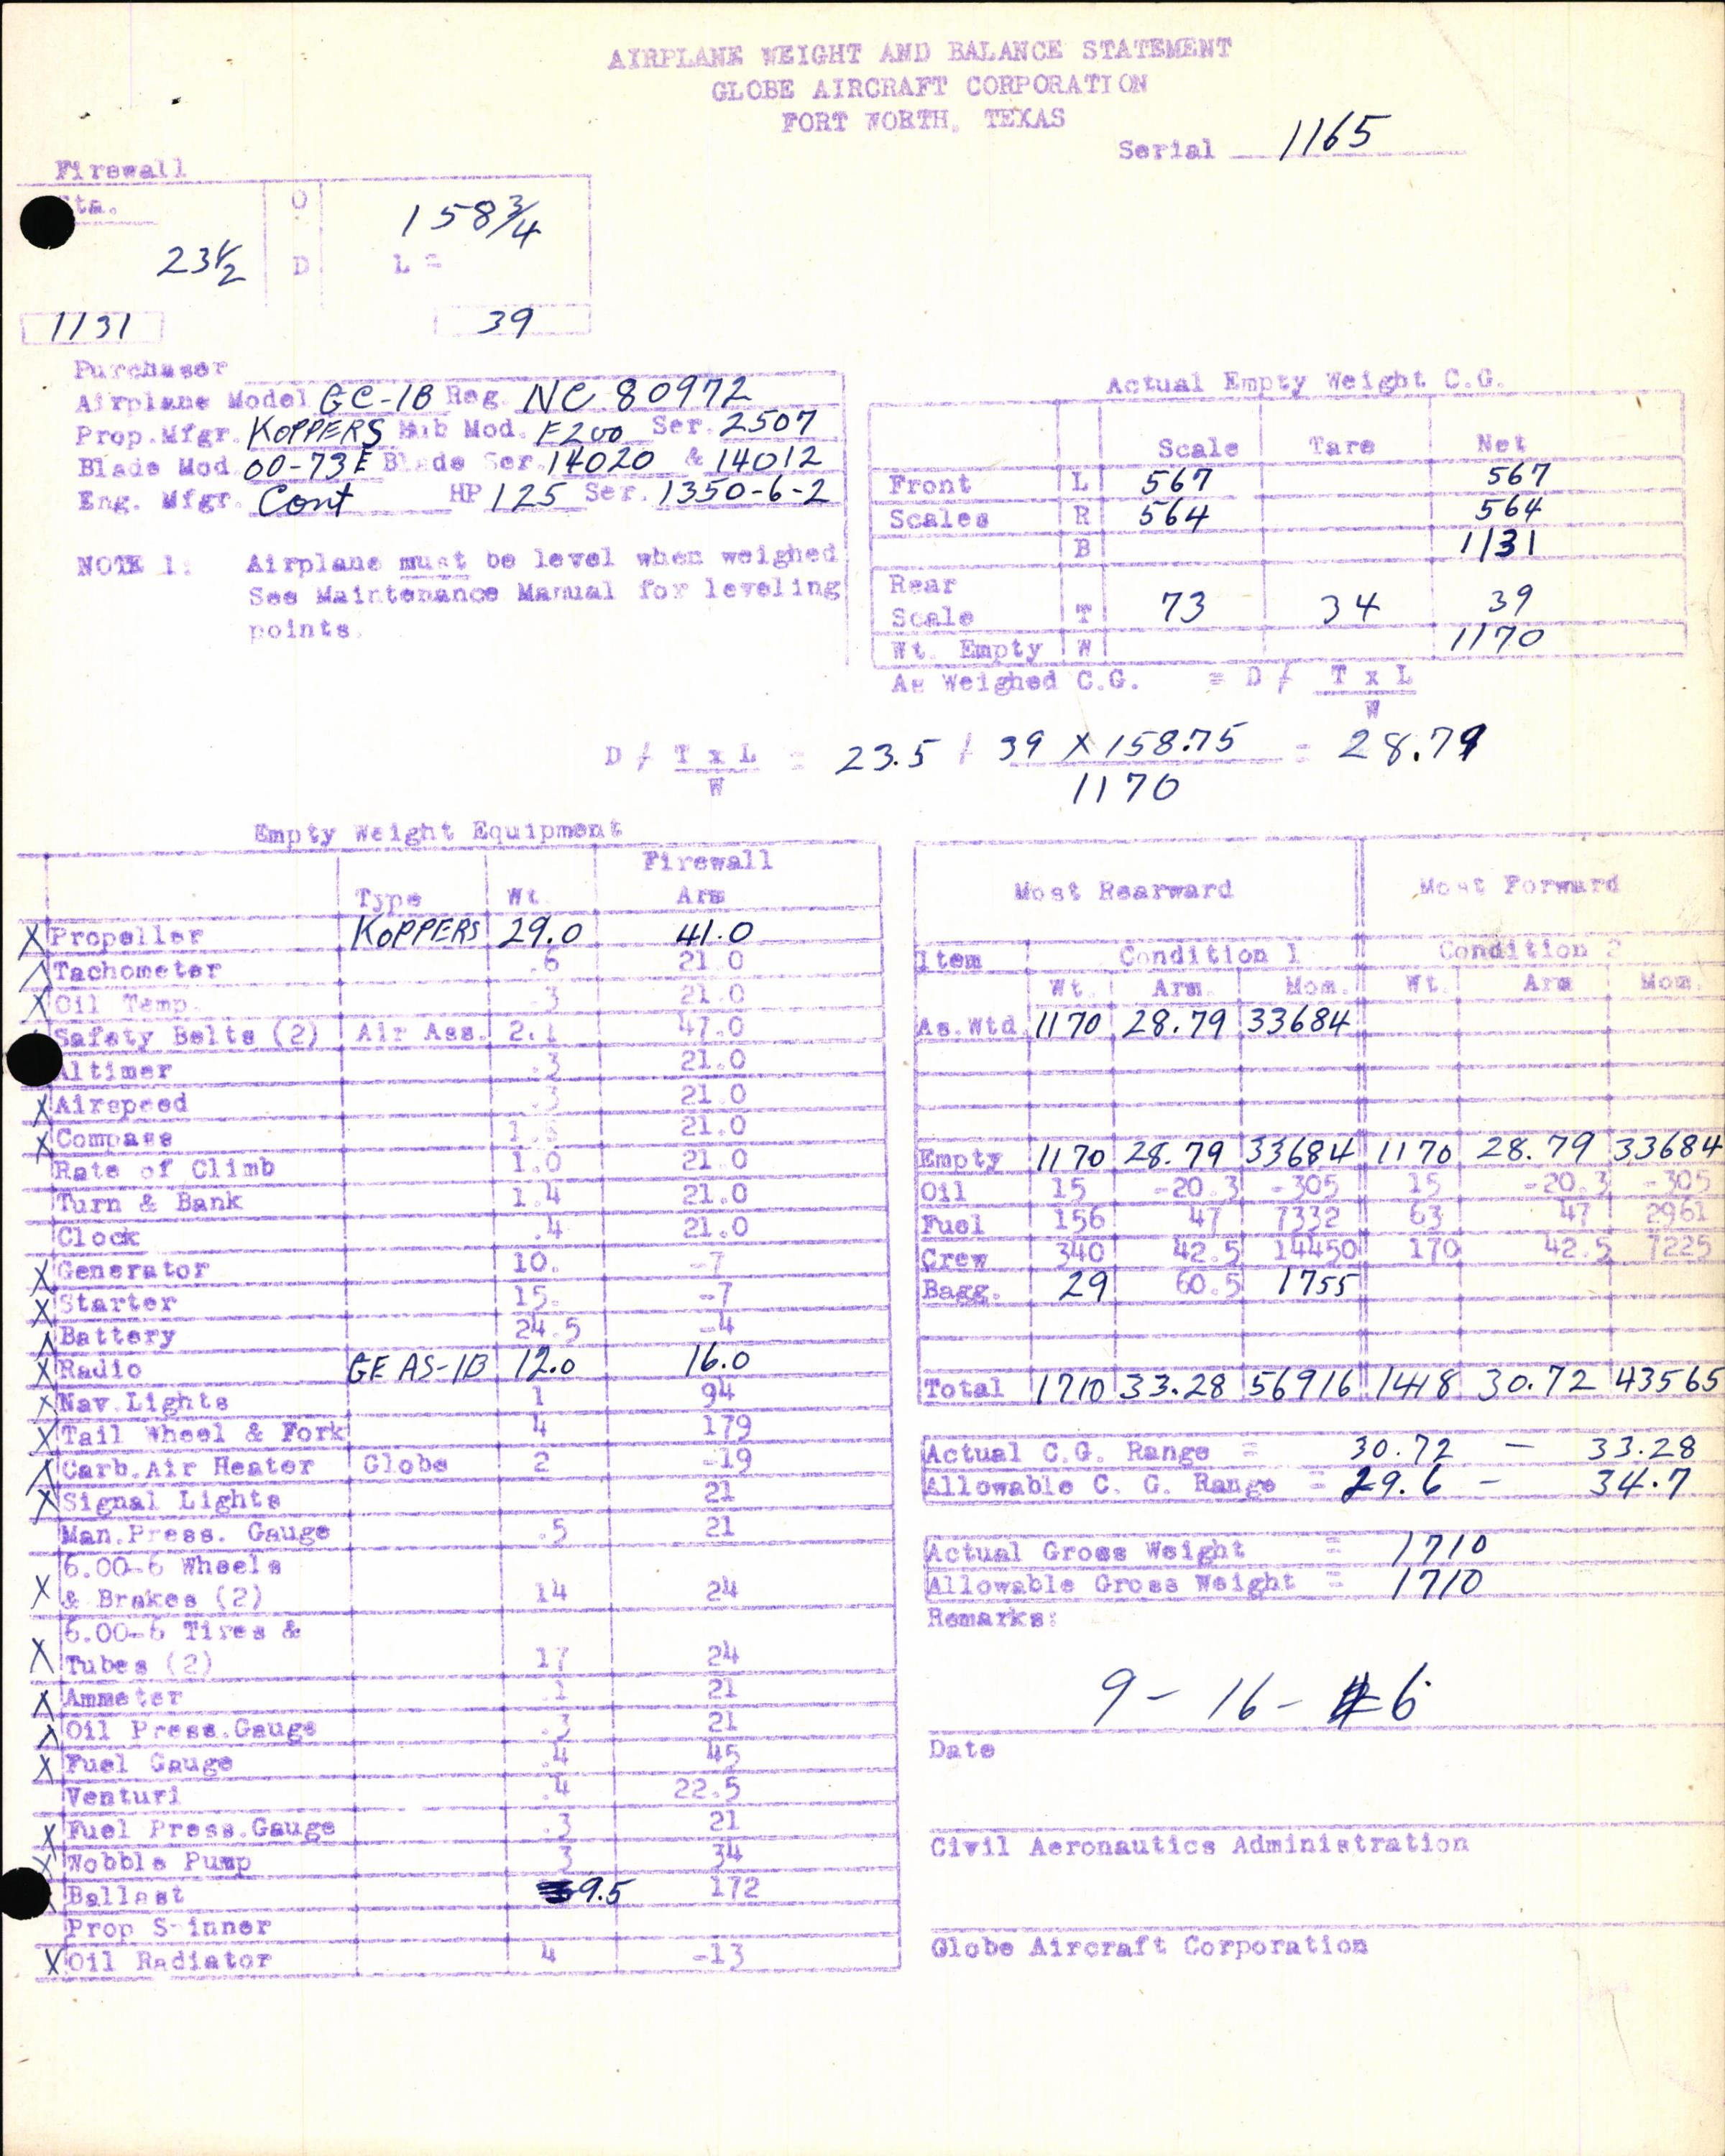 AIRPLANE WEIGHT AND BALANCE STATEMENT
GLOBE AIRCRAFT CORPORATION
FORT WORTH, TEXAS
Serial 1165
Firewall
Sta. O 158 3/4
23 1/2 D L =
1131 39
Purchaser
Airplane Model GC-1B Reg. NC 80972
Prop.Mfgr. KOPPERS Hub Mod. F200 Ser. 2507
Blade Mod. 00-73E Blade Ser. 14020 & 14012
Eng. Mfgr. Cont HP 125 Ser. 1350-6-2
NOTE 1: Airplane must be level when weighed
See Maintenance Manual for leveling
points.
Actual Empty Weight C.G.
Scale Tare Net
Front L 567 567
Scales R 564 564
B 1131
Rear
Scale T 73 34 39
Wt. Empty W 1170
As Weighed C.G. = D / T x L
W
D / T x L = 23.5 / 39 X 158.75 = 28.79
W 1170
Empty Weight Equipment
Firewall
Type Wt. Arm
X Propeller KOPPERS 29.0 41.0
X Tachometer .6 21.0
X Oil Temp. .3 21.0
Safety Belts (2) Air Ass. 2.1 47.0
Altimer .3 21.0
X Airspeed .3 21.0
X Compass 21.0
Rate of Climb 1.0 21.0
Turn & Bank 1.4 21.0
Clock .4 21.0
X Generator 10. -7
X Starter 15. -7
X Battery 24.5 -4
X Radio GE AS-1B 12.0 16.0
X Nav.Lights 1 94
X Tail Wheel & Fork 4 179
X Carb.Air Heater Globe 2 -19
X Signal Lights 21
Man.Press. Gauge .5 21
6.00-6 Wheels
X & Brakes (2) 14 24
6.00-6 Tires &
X Tubes (2) 17 24
X Ammeter .1 21
X Oil Press.Gauge .3 21
X Fuel Gauge .4 45
Venturi .4 22.5
X Fuel Press.Gauge .3 21
X Wobble Pump 3 34
Ballast 9.5 172
Prop S-inner
X Oil Radiator 4 -13
Most Rearward Most Forward
Item Condition 1 Condition 2
Wt. Arm. Mom. Wt. Arm Mom.
As.Wtd. 1170 28.79 33684
Empty 1170 28.79 33684 1170 28.79 33684
Oil 15 -20.3 -305 15 -20.3 -305
Fuel 156 47 7332 63 47 2961
Crew 340 42.5 14450 170 42.5 7225
Bagg. 29 60.5 1755
Total 1710 33.28 56916 1418 30.72 43565
Actual C.G. Range = 30.72 - 33.28
Allowable C. G. Range = 29.6 - 34.7
Actual Gross Weight = 1710
Allowable Gross Weight = 1710
Remarks:
9-16-46
Date
Civil Aeronautics Administration
Globe Aircraft Corporation